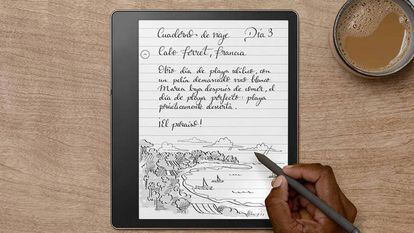 Cuaderno de viaje Día 3
Cabo Ferret, Francia
Otro día de playa idílico, con
un pelín demasiado
Marea baja después de comer, el
día de playa perfecto: playa
prácticamente desierta.
¡El paraíso!